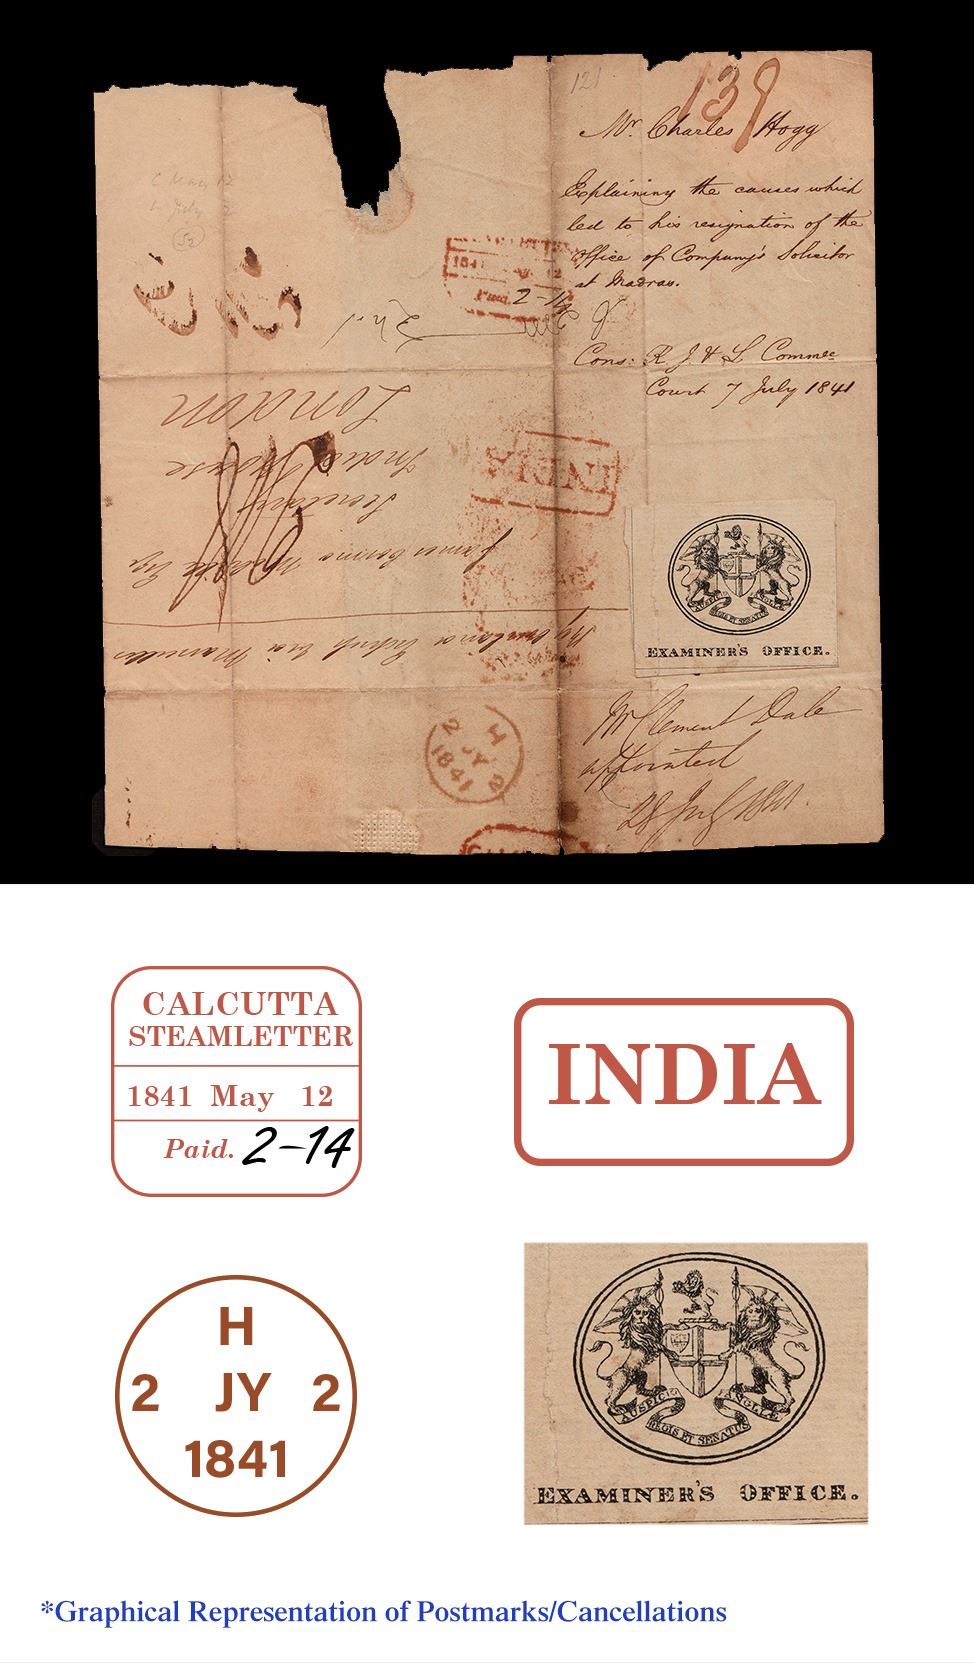 121
139
Mr. Charles Hogg
Explaining the causes which
led to his resignation of the
Office of Company's Solicitor
at Madras.
Cons: R. J. & L. Commee
Court 7 July 1841
C May 12
July 2
52
1841 12
Paid. 2-14
London
India House
Secretary
James Cosmo Esq
via Marseilles
INDIA
AUSPICIO REGIS ET SENATUS ANGLIÆ
EXAMINER'S OFFICE.
Mr Clement Dale
appointed
28 July 1841
H
2 JY 2
1841
CALCUTTA
STEAMLETTER
1841 May 12
Paid. 2-14
INDIA
H
2 JY 2
1841
AUSPICIO REGIS ET SENATUS ANGLIÆ
EXAMINER'S OFFICE.
*Graphical Representation of Postmarks/Cancellations